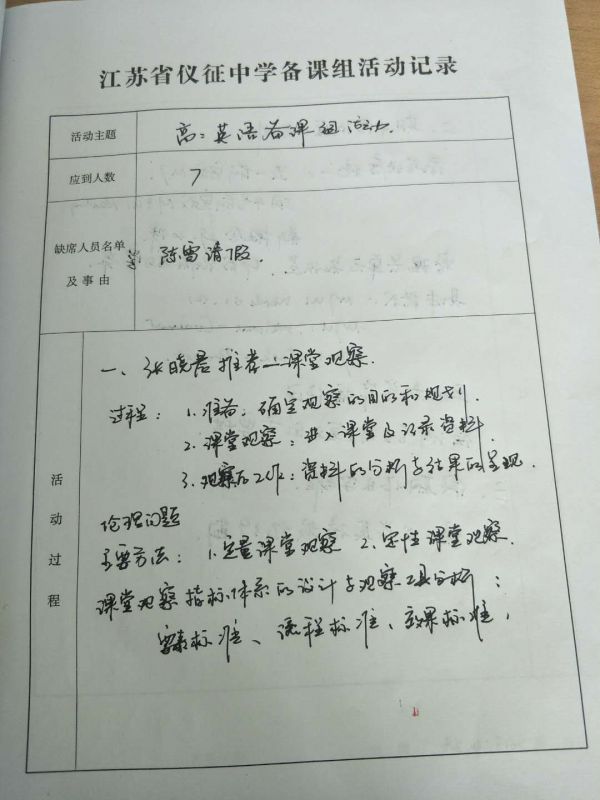 江苏省仪征中学备课组活动记录
活动主题 高二英语备课组活动
应到人数 7
缺席人员名单
及事由
陈雷请假
活动过程
一、张晓君推荐—课堂观察.
过程： 1.准备：确定观察的目的和规划.
2.课堂观察：进入课堂及记录资料.
3.观察后工作：资料的分析与结果的呈现.
伦理问题
主要方法： 1.定量课堂观察 2.定性课堂观察.
课堂观察指标体系的设计与观察工具分析：
要素标准、课程标准、效果标准，